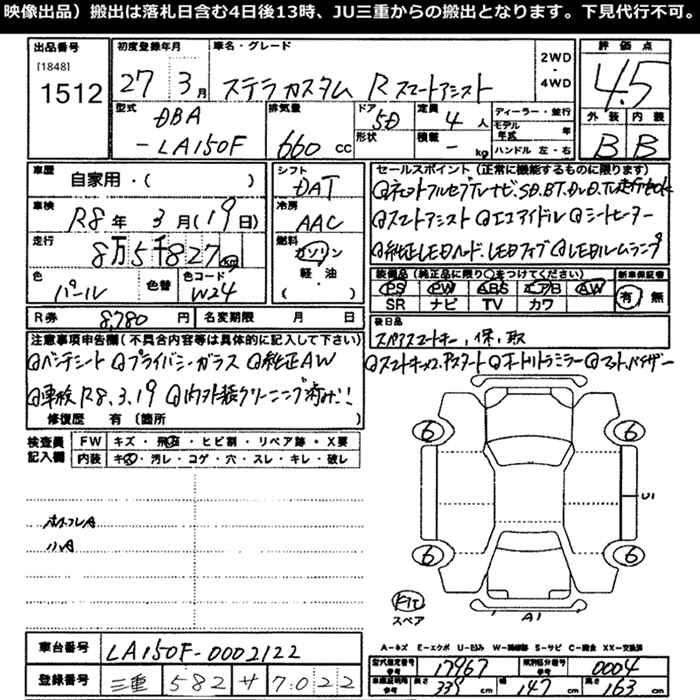 映像出品）搬出は落札日含む4日後13時、JU三重からの搬出となります。下見代行不可。
出品番号 初度登録年月 車名・グレード 2WD・4WD 評価点
[1848]
1512 27 3月 ステラカスタム R スマートアシスト 4.5
型式 排気量 ドア 定員 ディーラー・並行 外装 内装
DBA 5D 4人 モデル年式 年
-LA150F 660cc 形状 積載 - kg ハンドル 左・右 B B
車歴 シフト セールスポイント（正常に機能するものに限ります）
自家用・( ) DAT
車検 R8年3月(19日) 冷房 AAC スマートアシスト エコアイドル シートヒーター
走行 8万5千827km 燃料 ガソリン 純正LEDヘッド、LEDフォグ LEDルームランプ
軽・油
色 パール 色替 色コード W24 ( )
装備品（純正品に限り○をつけてください） 新車保証書
PS PW ABS エアB AW 有・無
SR ナビ TV カワ
R券 8,780円 名変期限 月 日
後日品
スペアスマートキー、保、取
注意事項申告欄（不具合内容等は具体的に記入して下さい）
ベンチシート プライバシーガラス 純正AW
車検R8.3.19 内外装クリーニング済み!!
修復歴 有（箇所 ）
検査員記入欄 FW キズ・飛石・ヒビ割・リペア跡・X要
内装 キズ・汚レ・コゲ・穴・スレ・キレ・破レ
6 6
U1
6 6
スペア
A1
A－キズ E－エクボ U－凹み W－補修跡 S－サビ C－腐食 XX－交換済
車台番号 LA150F-0002122
型式指定番号 17967 類別区分番号 0004
登録番号 三重 582 サ 7022
長さ 339cm 幅 147cm 高さ 163cm